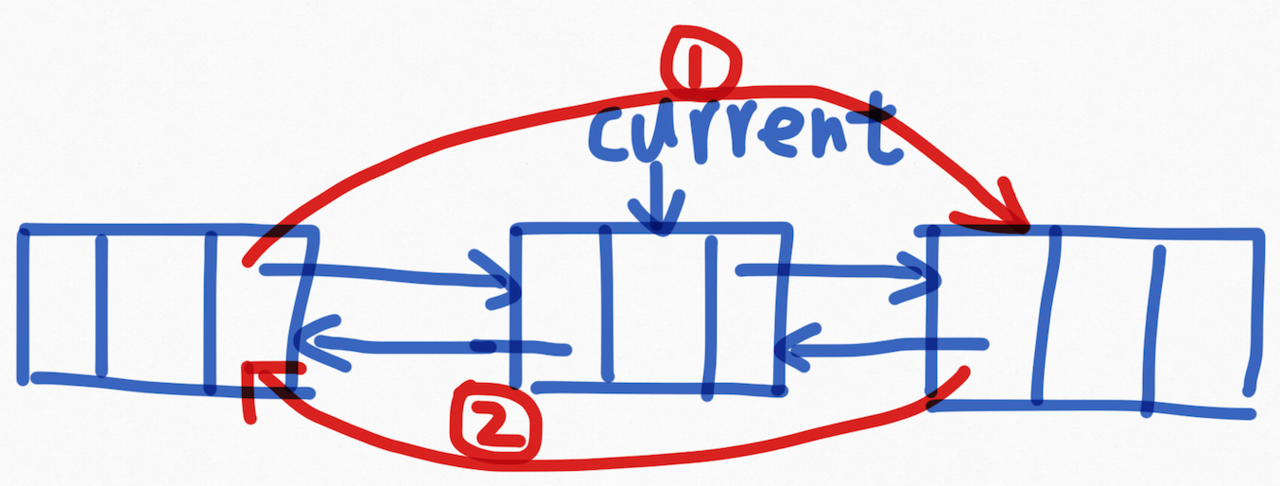 1
current
2